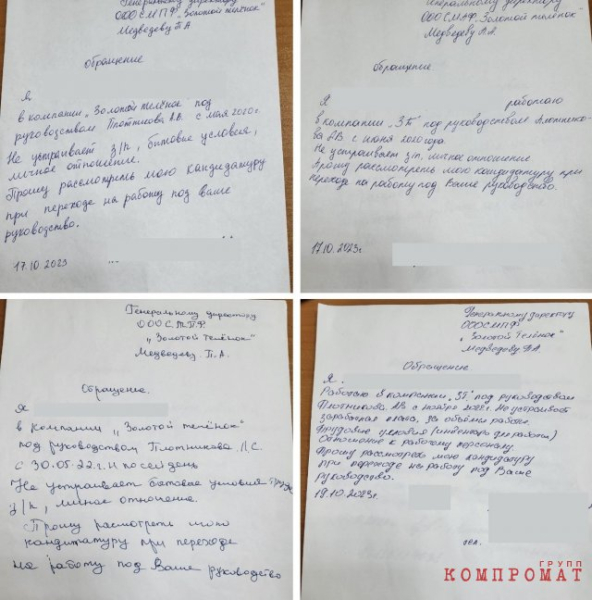 Генеральному директору
ООО СМПФ "Золотой телёнок"
Медведеву П А
Обращение
Я
в компании "Золотой телёнок" под
руководством Плотникова А.В. с мая 2020г.
Не устраивает з/п, бытовые условия,
личное отношение.
Прошу рассмотреть мою кандидатуру
при переходе на работу под ваше
руководство.
17.10.2023
Генеральному директору
ООО СМПФ "Золотой телёнок"
Медведеву П.А.
Обращение
Я работаю
в компании "ЗТ" под руководством Плотнико-
ва АВ с июня 2020 года.
Не устраивает зп, личное отношение
Прошу рассмотреть мою кандидатуру при
переходе на работу под Ваше руководство.
17.10.2023г
Генеральному директору
ООО С.М.П.Ф.
"Золотой Телёнок"
Медведеву. П.А.
Обращение.
Я
в компании "Золотой телёнок"
под руководством Плотникова
с 30.05.22.г. и по сей день
Не устраивает бытовые условия
з/п, личное отношение.
Прошу расмотреть мою
кандитатуру при переходе
на работу под Ваше руководство
Генеральному директору
ООО СМПФ
"Золотой Телёнок"
Медведеву П.А.
Обращение.
Я
Работаю в компании "ЗТ" под руководством
Плотникова АВ с ноября Не устраивает
заработная плата, за объёмы работы,
трудовые условия (инвентарь для работы)
Отношение к рабочему персоналу
Прошу рассмотреть мою кандидатуру
при переходе на работу под Ваше
руководство.
19.10.2023г.
тел.
ГРУПП
КОМПРОМАТ